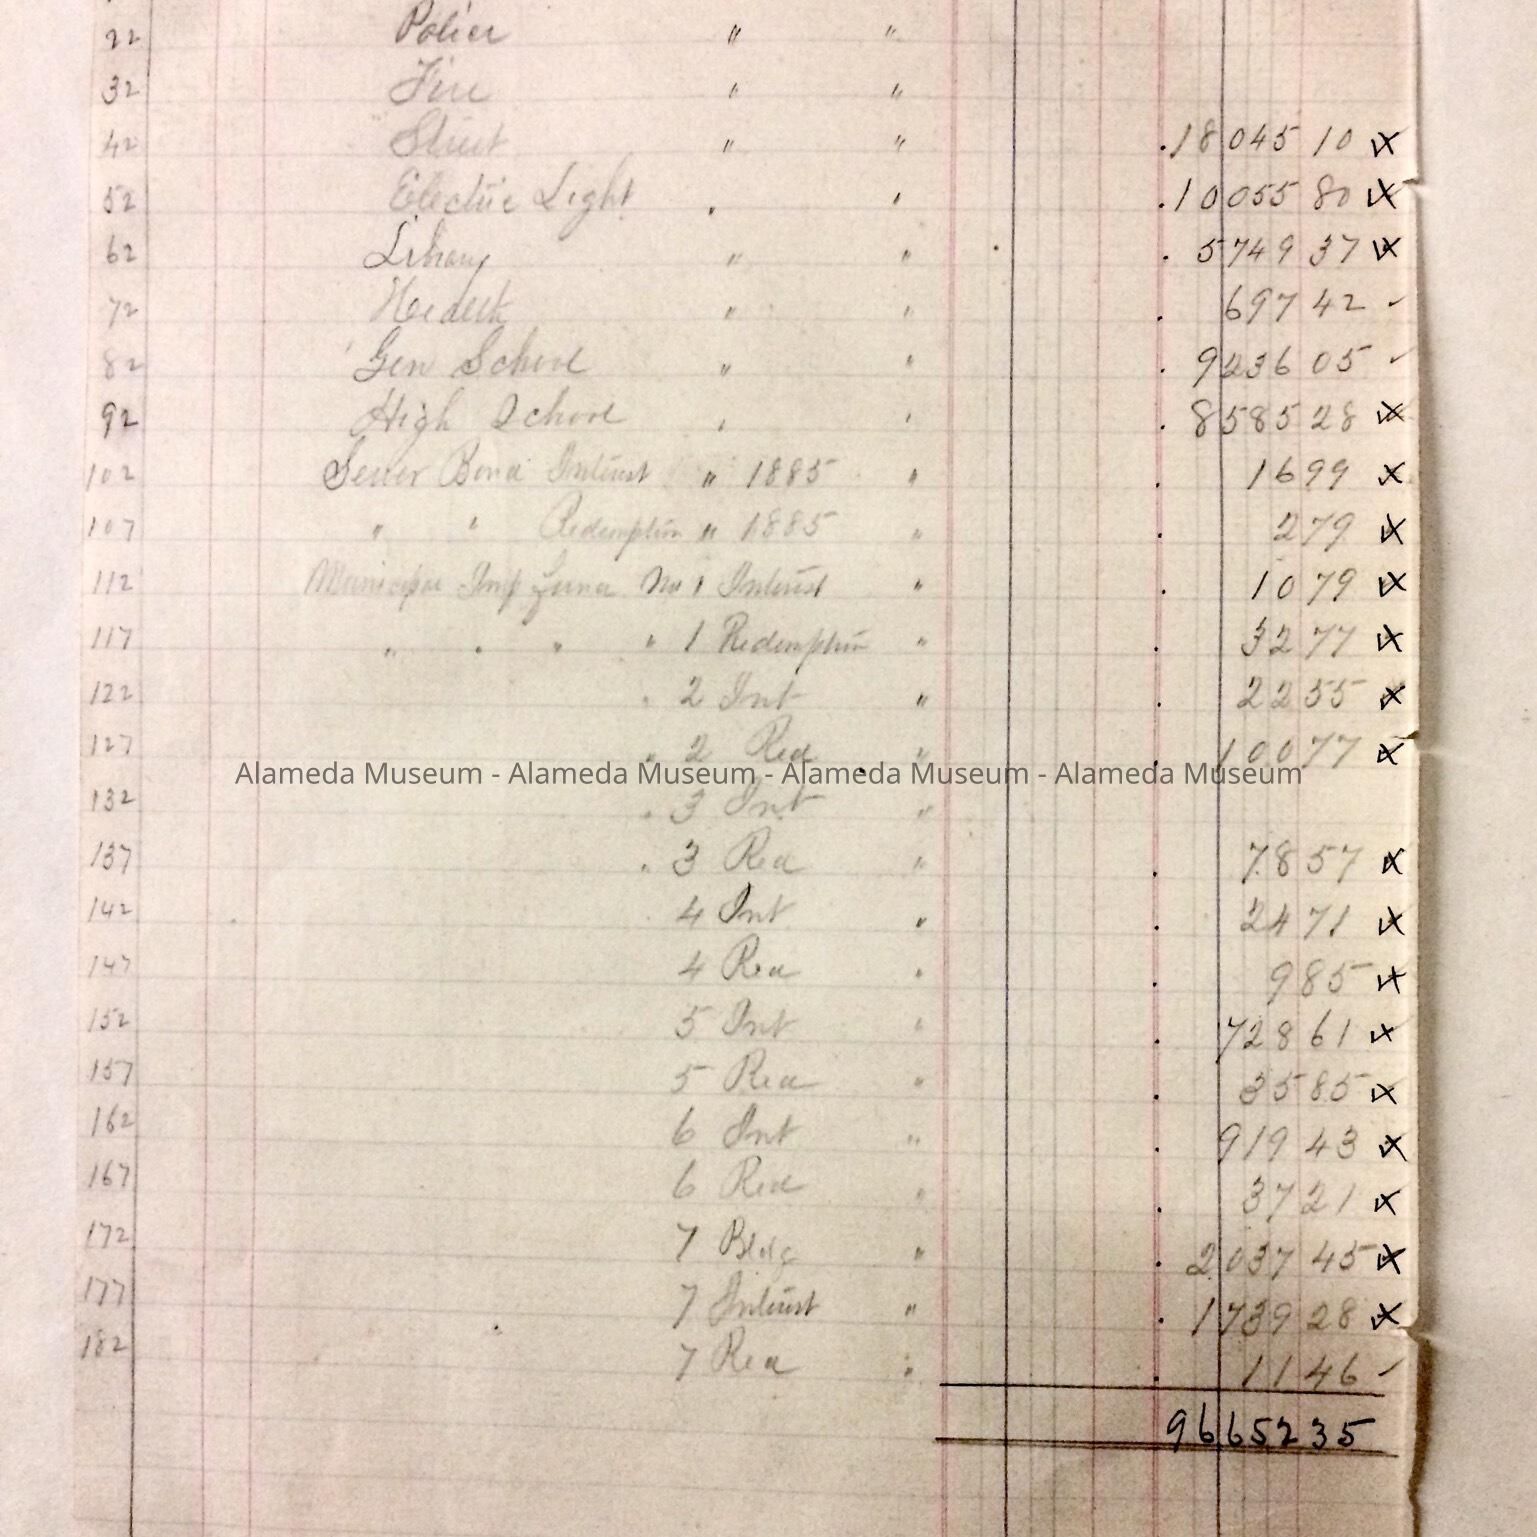 22 Police " "
32 Fire " "
42 Street " " . 18045 10 x
52 Electric Light . " . 10055 80 x
62 Library " " . 5749 37 x
72 Health " " . 697 42 ✓
82 Gen School " " . 9236 05 ✓
92 High School " " . 8585 28 x
102 Sewer Bond Interest " 1885 " . 16 99 x
107 " " Redemption " 1885 " . 2 79 x
112 Municipal Imp Fund No 1 Interest " . 10 79 x
117 " " " " 1 Redemption " . 32 77 x
122 " 2 Int " . 22 55 x
127 " 2 Red " . 100 77 x
Alameda Museum - Alameda Museum - Alameda Museum - Alameda Museum
132 " 3 Int "
137 " 3 Red " . 78 57 x
142 4 Int " . 24 71 x
147 4 Red " . 9 85 x
152 5 Int " . 728 61 x
157 5 Red " . 35 85 x
162 6 Int " . 919 43 x
167 6 Red " . 37 21 x
172 7 Bldg " . 2037 45 x
177 7 Interest " . 1739 28 x
182 7 Red " . 11 46 ✓
96652 35